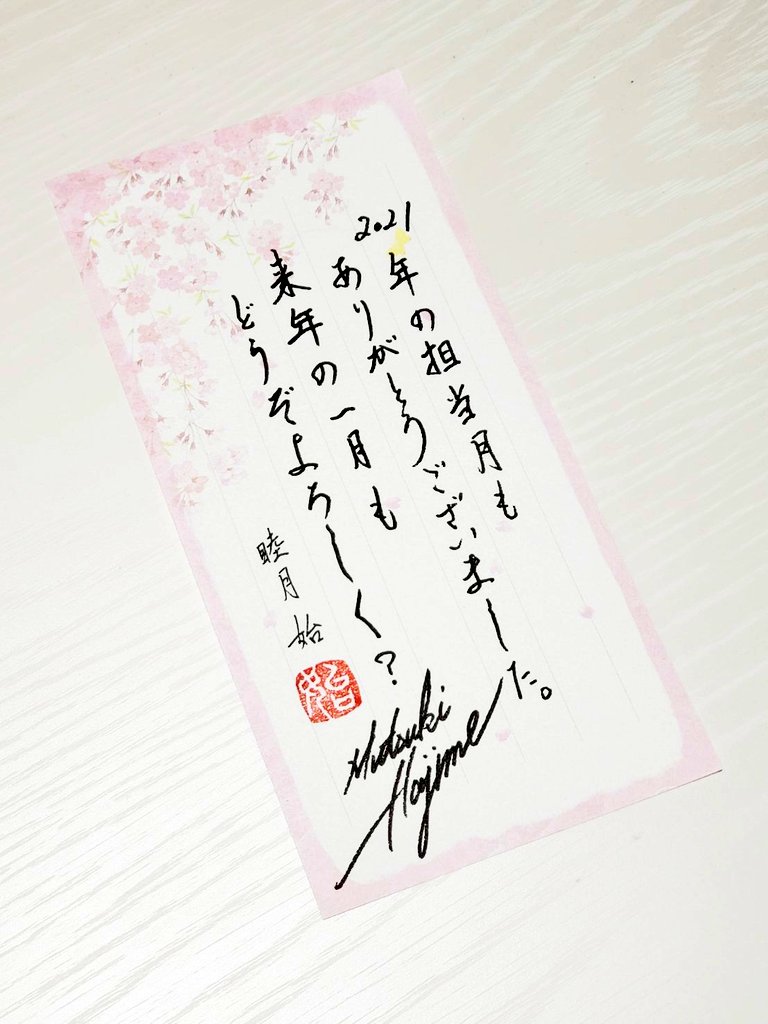 2021
年の担当月も
ありがとうございました。
来年の一月も
どうぞよろしく?
睦月 始
始
Mutsuki
Hajime